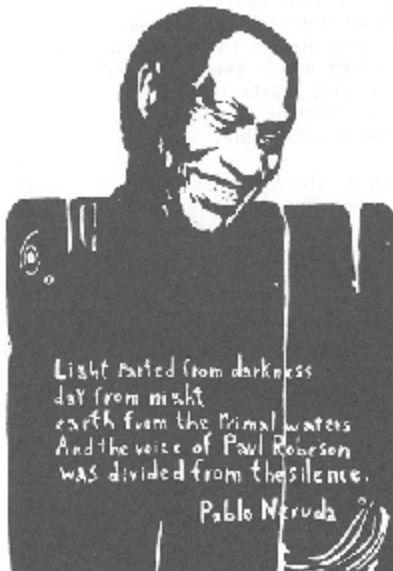 Light parted from darkness
day from night
earth from the primal waters
And the voice of Paul Robeson
was divided from the silence.
Pablo Neruda